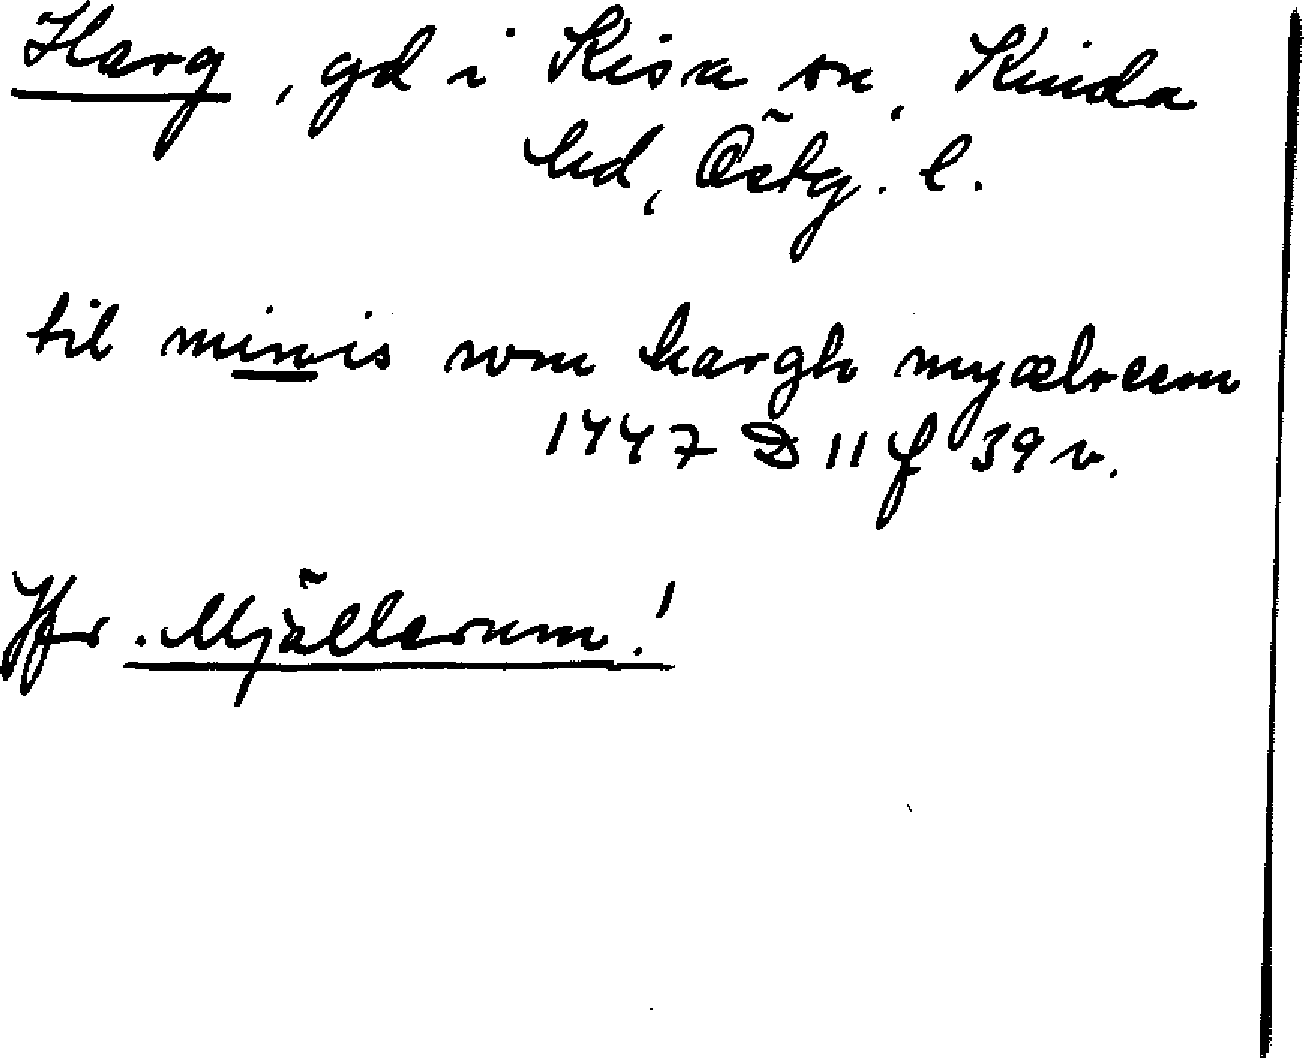 Harg, gd i Kisa sn, Kinda
hd, Östg. l.
til minnis som hargh myælreem
1447 D 11 f 39 v.
Jfr. Mjällerum!